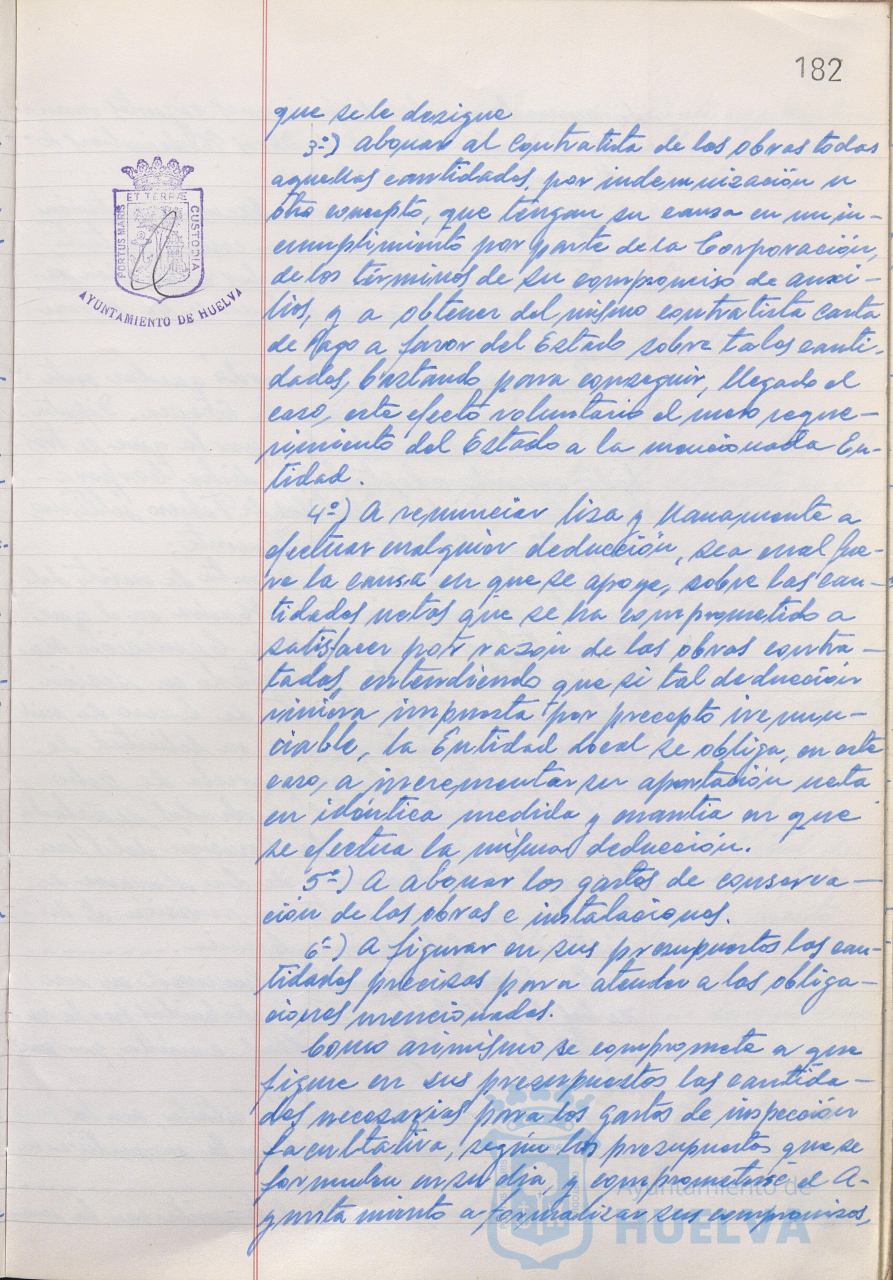 182
que se le designe
3º) abonar al contratista de las obras todas
aquellas cantidades, por indemnización u
otro concepto, que tengan su causa en un in-
cumplimiento por parte de la Corporación,
de los términos de su compromiso de auxi-
lios, y a obtener del mismo contratista carta
de Pago a favor del Estado sobre tales canti-
dades, bastando para conseguir, llegado el
caso, este efecto voluntario el mero reque-
rimiento del Estado a la mencionada En-
tidad.
4º) A renunciar lisa y llanamente a
efectuar cualquier deducción, sea cual fue-
re la causa en que se apoye, sobre las can-
tidades netas que se ha comprometido a
satisfacer por razón de las obras contra-
tadas, entendiendo que si tal deducción
viniera impuesta por precepto irrenun-
ciable, la Entidad Local se obliga, en este
caso, a incrementar su aportación neta
en idéntica medida y cuantia en que
se efectua la misma deducción.
5º) A abonar los gastos de conserva-
ción de las obras e instalaciones.
6º) A figurar en sus presupuestos las can-
tidades precisas para atender a las obliga-
ciones mencionadas.
Como asimismo se compromete a que
figure en sus presupuestos las cantida-
des necesarias para los gastos de inspección
facultativa, según los presupuestos que se
formulen en su dia, y comprometerse el A-
yuntamiento a formalizar sus compromisos,
PORTUS MARIS
ET TERRÆ
CUSTODIA
AYUNTAMIENTO DE HUELVA
Ayuntamiento de
HUELVA